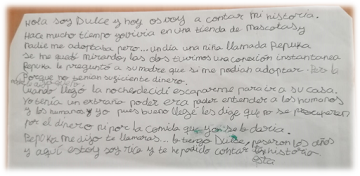 Hola soy Dulce y hoy os voy a contar mi historia.
Hace mucho tiempo yo vivía en una tienda de mascotas y
nadie me adoptaba pero... un día una niña llamada Pepuka
se me quedó mirando y las dos tuvimos una conexión instantánea
Pepuka le preguntó a su madre que si me podían adoptar
Porque no tenían suficiente dinero.
Cuando llegó la noche decidí escaparme para ir a su casa.
Yo tenía un extraño poder era poder entender a los humanos
y los humanos a yo pues bueno llegé les dige que no se preocuparan
por el dinero ni por la comida que yo se la daría.
Pepuka me dijo te llamaras... Dulce, pasaron los años
y aquí estoy soy rica y te he podido contar historia
esta